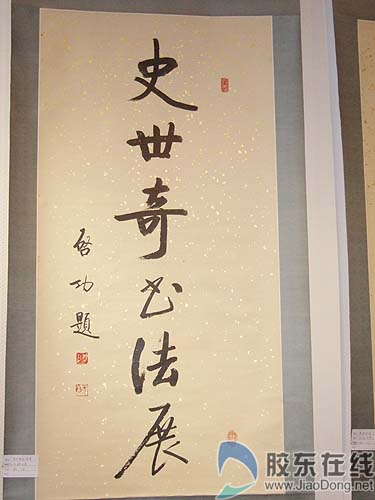 史世奇书法展
启功题
胶东在线
www.JiaoDong.net